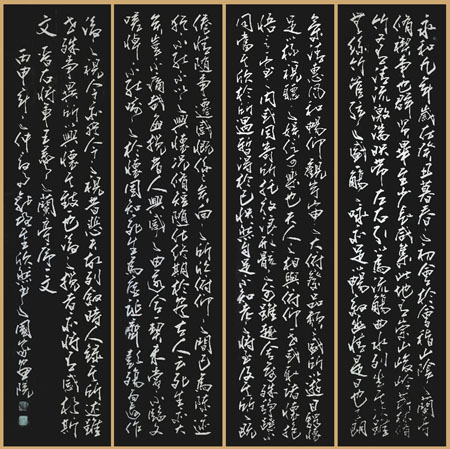 永和九年歲在癸丑暮春之初會於會稽山陰之蘭亭
脩禊事也群賢畢至少長咸集此地有崇山峻領茂林脩
竹又有清流激湍映帶左右引以為流觴曲水列坐其次雖
無絲竹管弦之盛一觴一詠亦足以暢敘幽情是日也天朗
氣清惠風和暢仰觀宇宙之大俯察品類之盛所以遊目騁懷
足以極視聽之娛信可樂也夫人之相與俯仰一世或取諸懷抱
悟言一室之內或因寄所託放浪形骸之外雖趣舍萬殊靜躁不
同當其欣於所遇暫得於己快然自足不知老之將至及其所之既
倦情隨事遷感慨係之矣向之所欣俛仰之間已為陳迹
猶不能不以之興懷況脩短隨化終期於盡古人云死生亦大
矣豈不痛哉每攬昔人興感之由若合一契未嘗不臨文
嗟悼不能喻之於懷固知一死生為虛誕齊彭殤為妄作
後之視今亦猶今之視昔悲夫故列敘時人錄其所述雖
世殊事異所以興懷其致一也後之攬者亦將有感於斯
文 王羲之蘭亭序文
丙申年